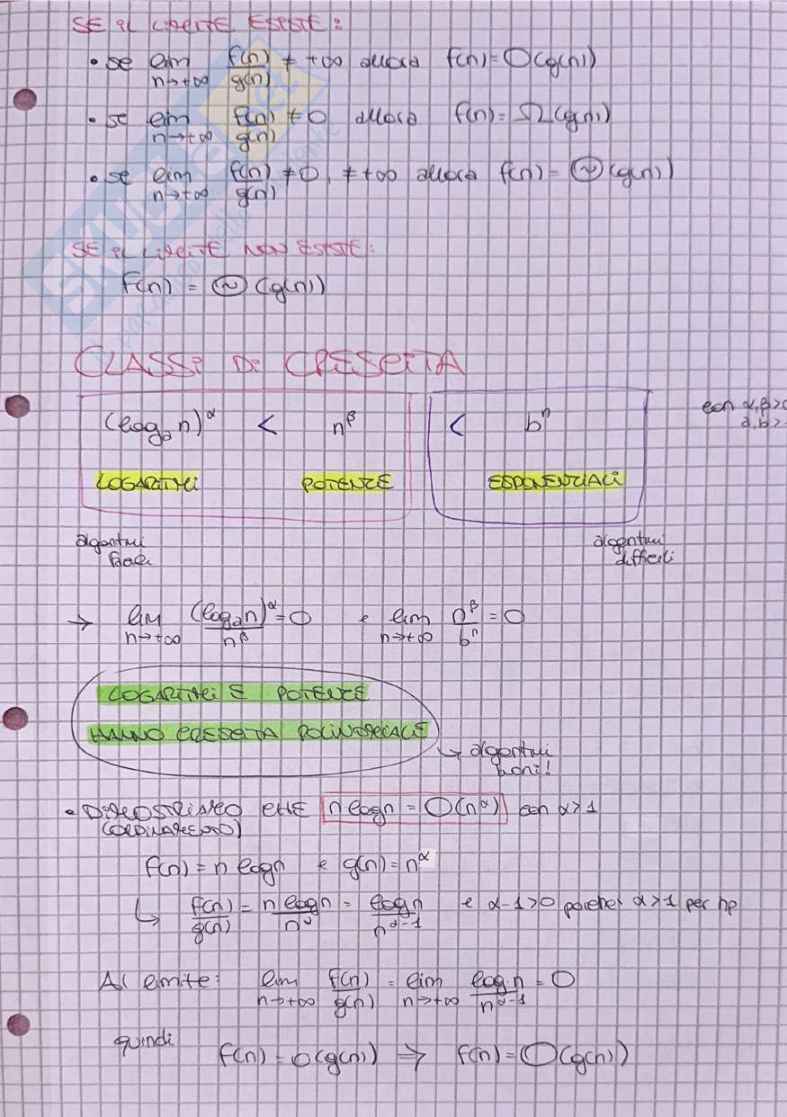 SE IL LIMITE ESISTE:
• se lim n→+∞ f(n)/g(n) ≠ +∞ allora f(n)=O(g(n))
• se lim n→+∞ f(n)/g(n) ≠ 0 allora f(n)=Ω(g(n))
• se lim n→+∞ f(n)/g(n) ≠ 0, ≠ +∞ allora f(n)=Θ(g(n))
SE IL LIMITE NON ESISTE:
f(n) = Θ(g(n))
CLASSI DI CRESCITA
(logₐ n)^α < n^β < b^n con α,β>0
a,b>
LOGARITMI POTENZE ESPONENZIALI
algoritmi facili algoritmi difficili
→ lim n→+∞ (logₐn)^α/n^β = 0 e lim n→+∞ n^β/b^n = 0
LOGARITMI E POTENZE
HANNO CRESCITA POLINOMIALE
↳ algoritmi boni!
• DIMOSTRIAMO CHE n logn = O(n^α) con α>1
(ORDINAMENTO)
f(n) = n logn e g(n) = n^α
↳ f(n)/g(n) = n logn/n^α = logn/n^(α-1) e α-1>0 poiché α>1 per hp
Al limite: lim n→+∞ f(n)/g(n) = lim n→+∞ logn/n^(α-1) = 0
quindi f(n) = o(g(n)) ⇒ f(n) = O(g(n))